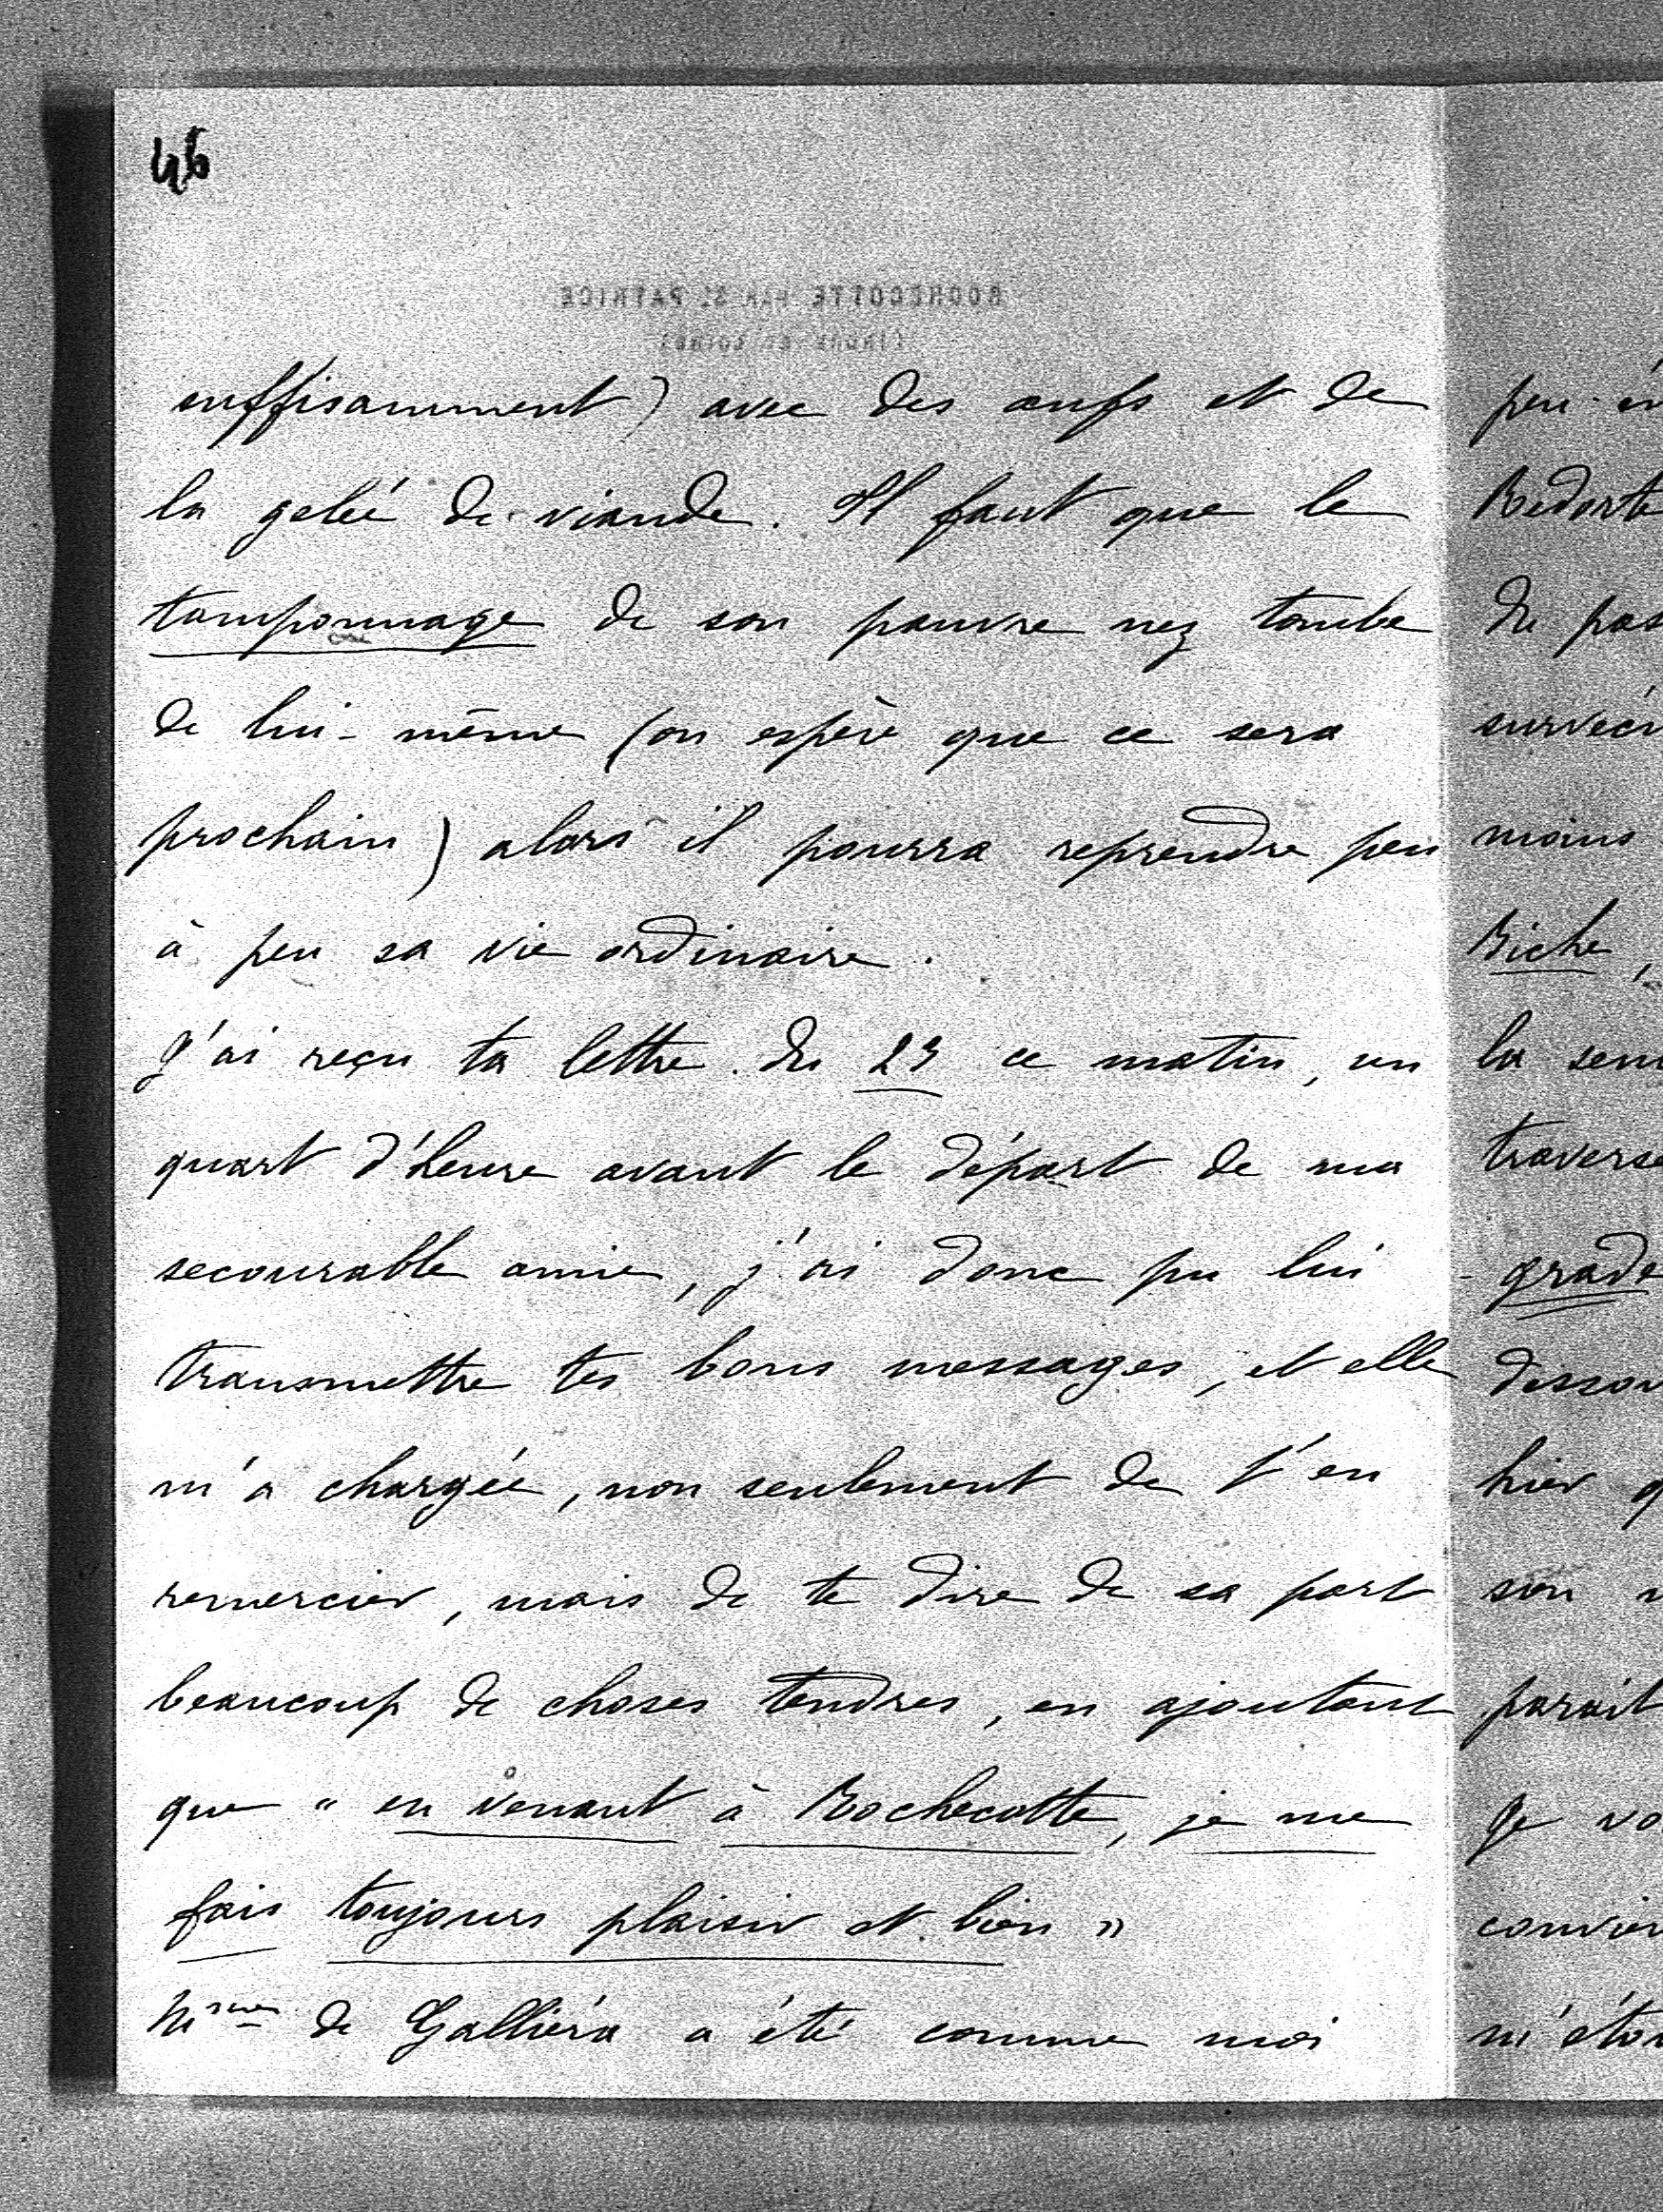 46
ROCHECOTTE PAR St PATRICE
(INDRE ET LOIRE)
suffisamment) avec des œufs et de
la gelée de viande. Il faut que le
tamponnage de son pauvre nez tombe
de lui-même (on espère que ce sera
prochain) alors il pourra reprendre peu
à peu sa vie ordinaire.
J'ai reçu ta lettre du 23 ce matin, un
quart d'heure avant le départ de ma
secourable amie, j'ai donc pu lui
transmettre tes bons messages, et elle
m'a chargée, non seulement de t'en
remercier, mais de te dire de sa part
beaucoup de choses tendres, en ajoutant
que "en venant à Rochecotte, je me
fais toujours plaisir et bien"
Mme de Galliéra a été comme moi
peu
Bedorte
de pas
survécu
moins
Riche,
la
traverse
grade
hier
son
parait
Je